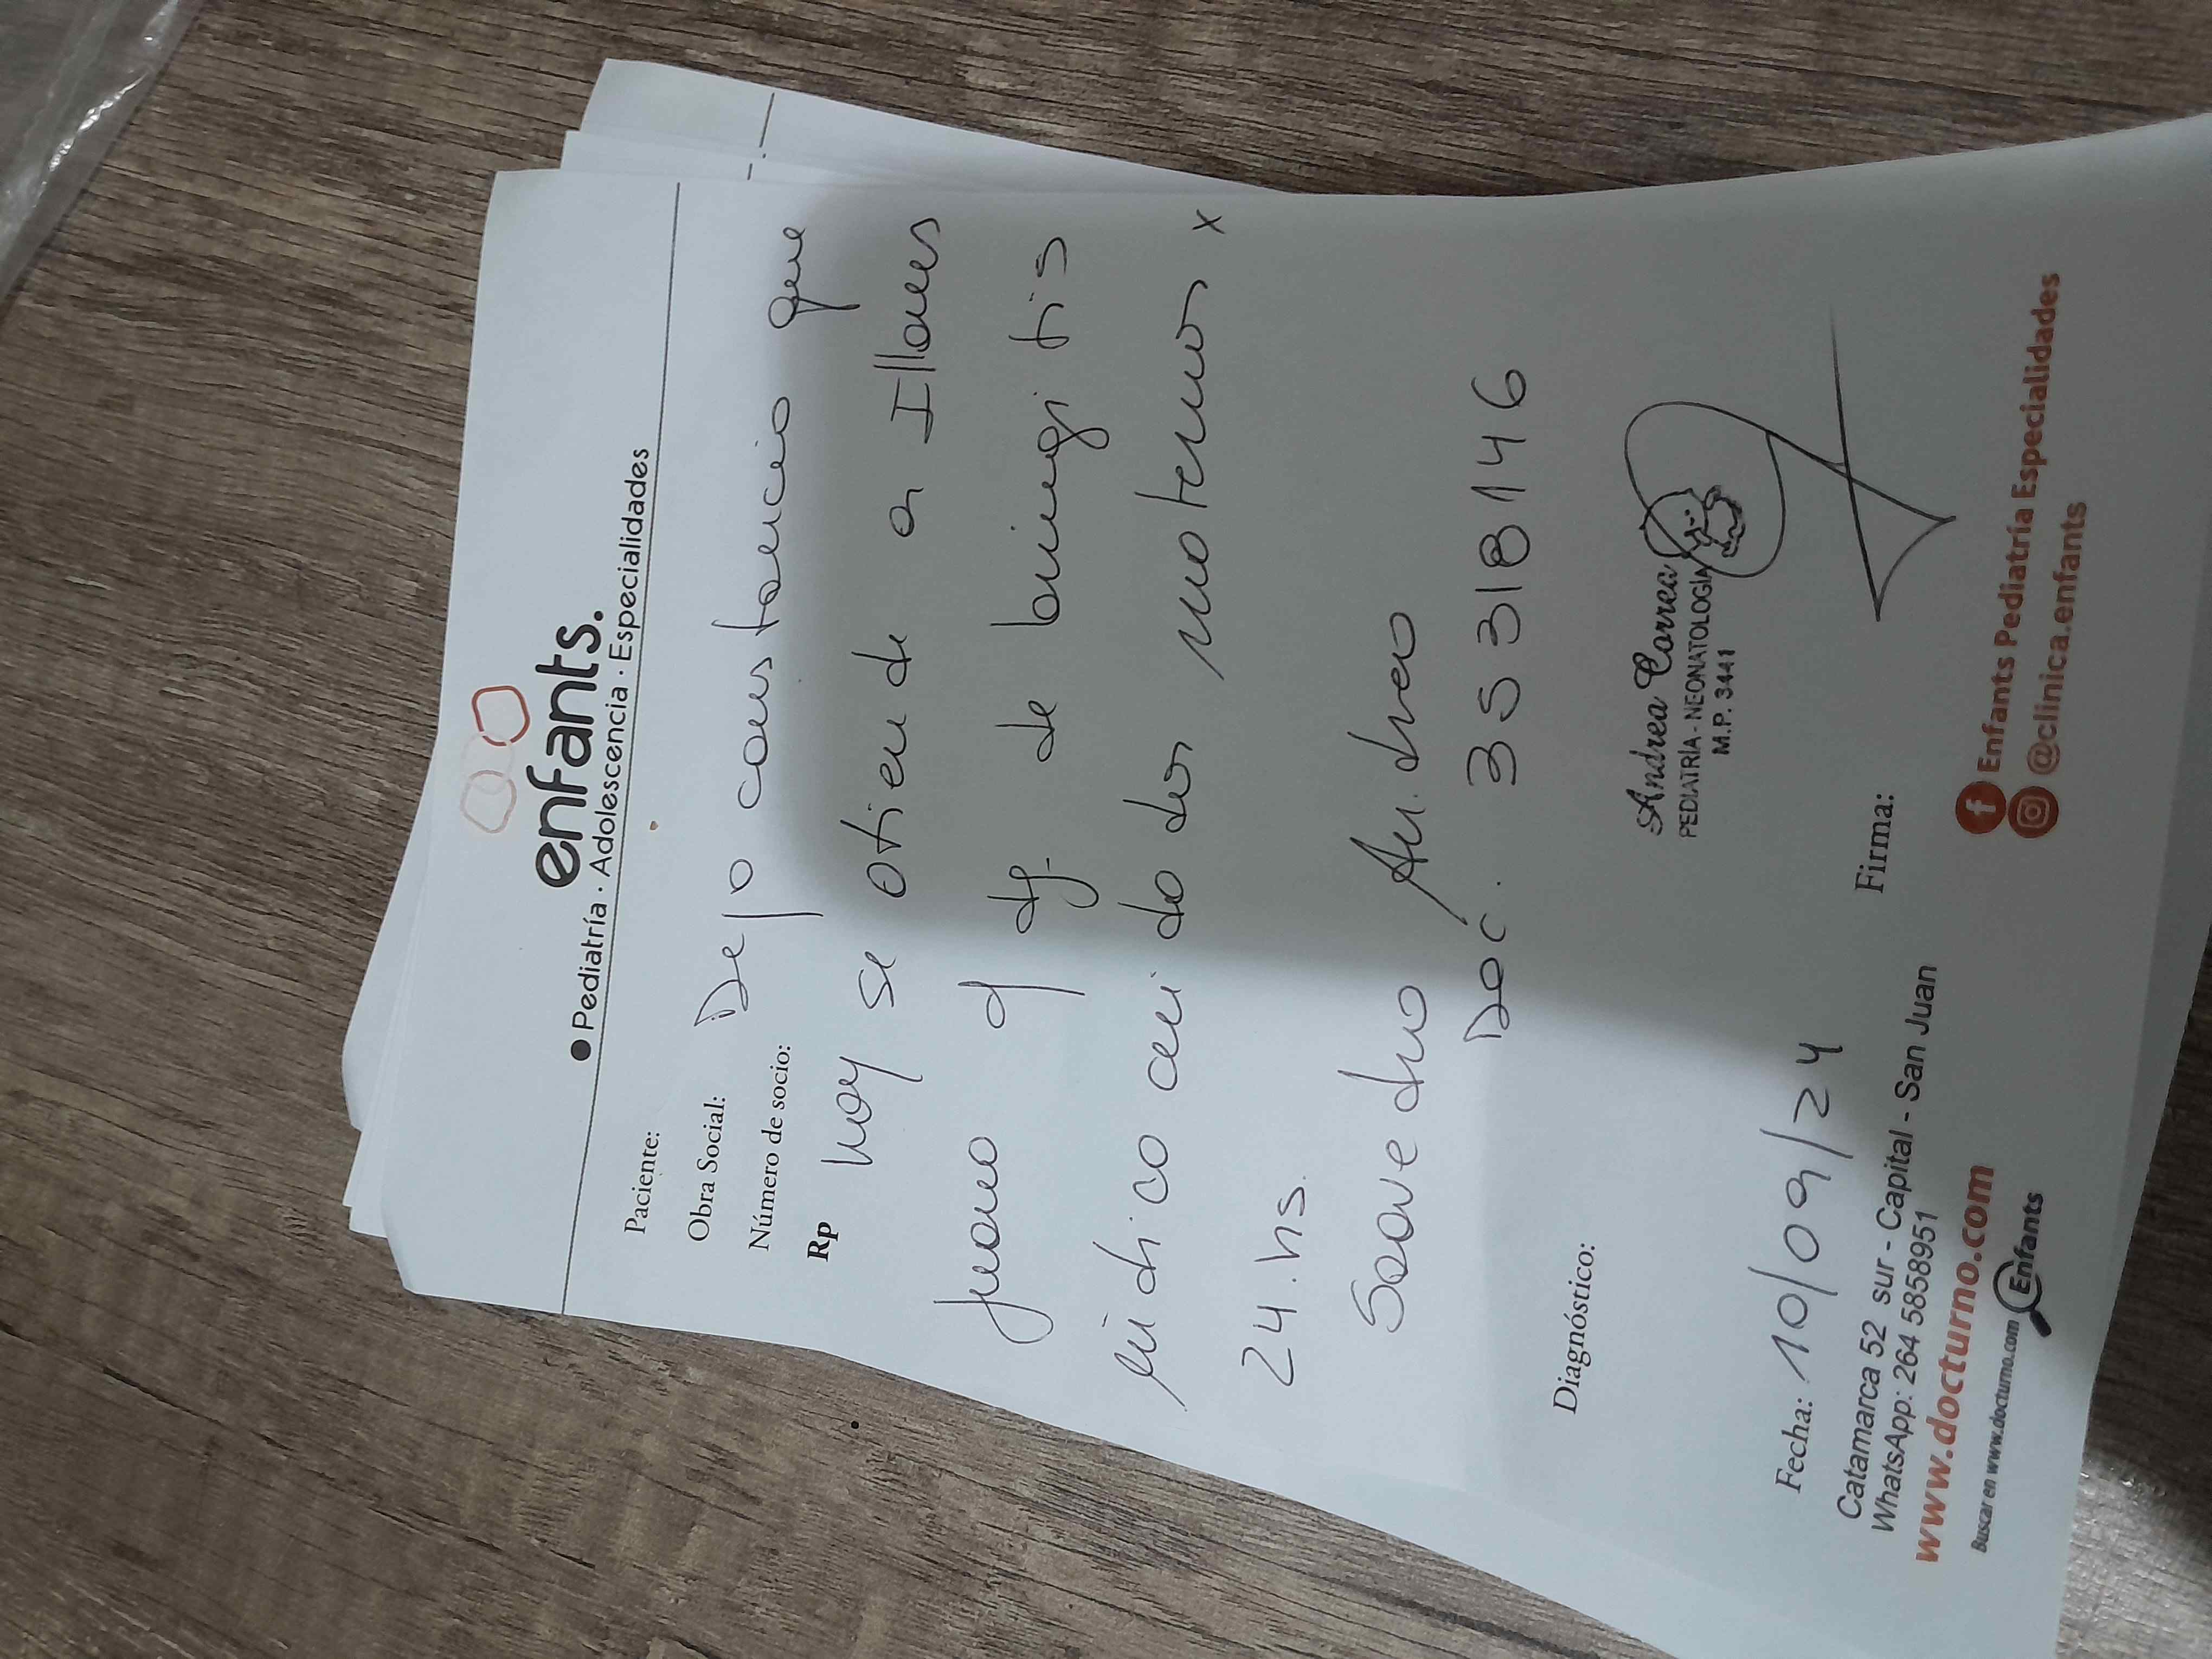 enfants.
• Pediatría · Adolescencia · Especialidades
Paciente:
Obra Social:
Número de socio:
Dejo constancia que
Rp hoy se atiende a Illanes
Juano c/ dg. de laringitis
indico cuidados maternos x
24.hs.
Saavedra Andrea
Doc. 35318146
Diagnóstico:
Andrea Correa
PEDIATRÍA - NEONATOLOGÍA
M.P. 3441
Fecha: 10/09/24
Firma:
Catamarca 52 sur - Capital - San Juan
WhatsApp: 264 5858951
www.docturno.com
Buscar en www.docturno.com Enfants
Enfants Pediatría Especialidades
@clinica.enfants